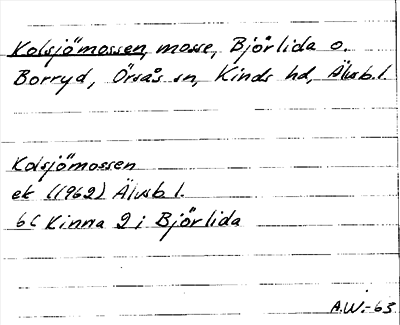 Kolsjömossen, mosse, Björlida o.
Borryd, Örsås sn, Kinds hd, Älvsb. l.
Kolsjömossen
ek (1962) Älvsb. l.
6C Kinna 2 i Björlida
A.W.-63